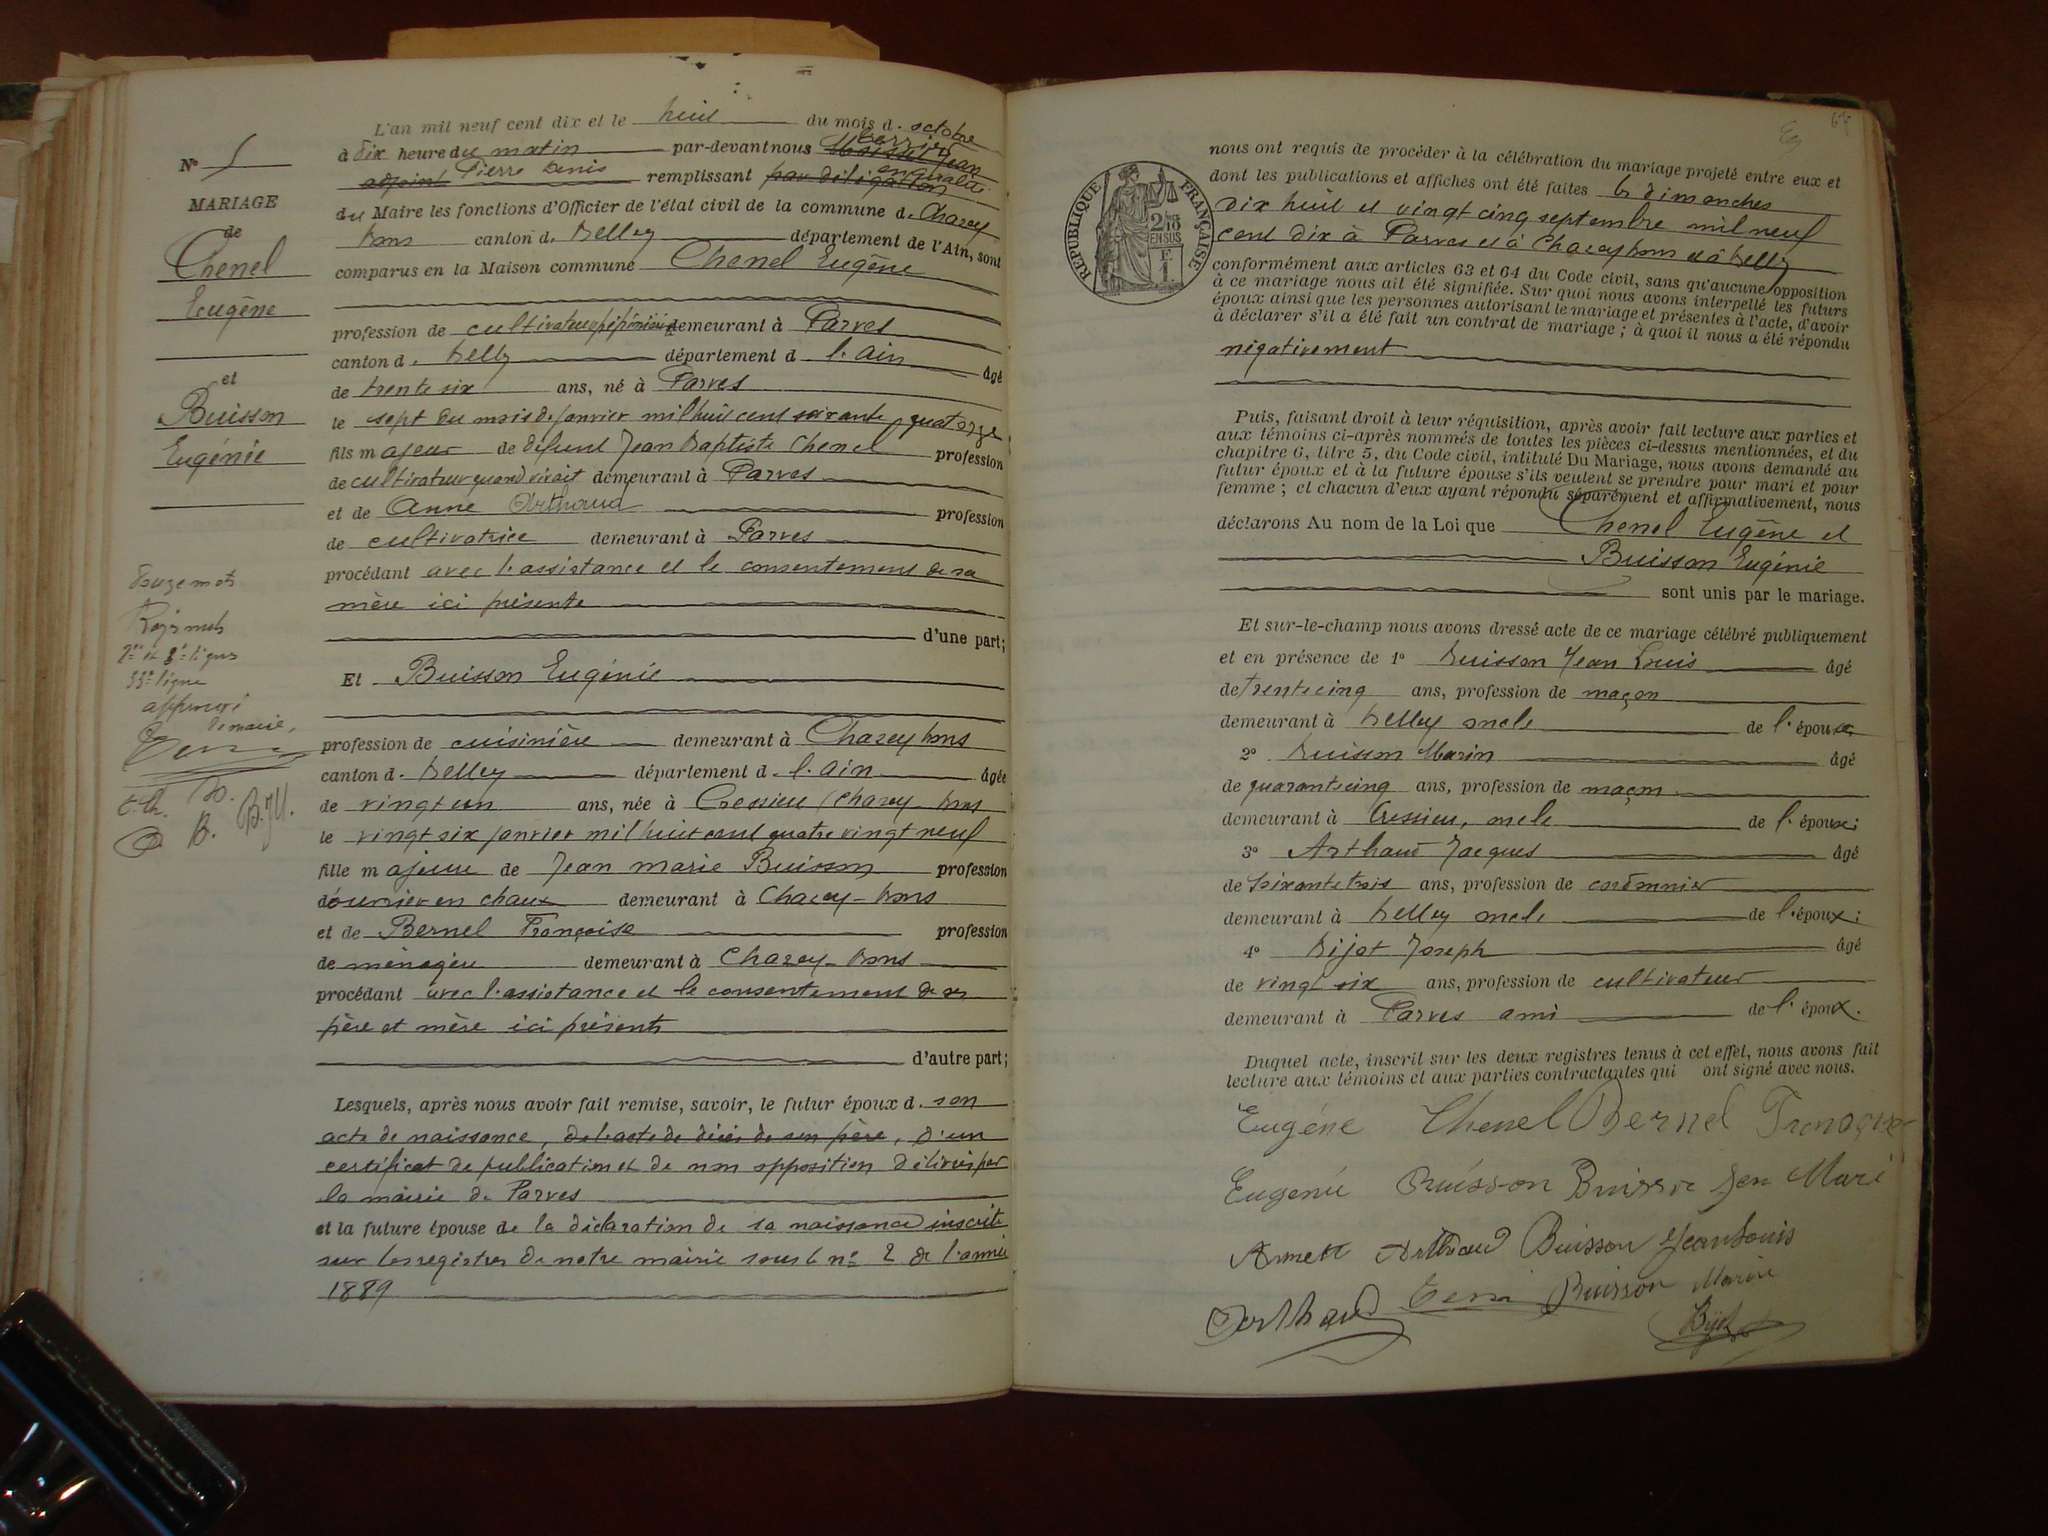 L'an mil neuf cent dix et le huit du mois d. octobre
à dix heure du matin par-devant nous
adjoint Pierre Denis remplissant par délégation en qualité
du Maire les fonctions d'Officier de l'état civil de la commune d. Chazey
bons canton d. belley département de l'Ain, sont
comparus en la Maison commune Chenel Eugène
profession de cultivateur pépiniériste demeurant à Parves
canton d. belley département d l'ain âgé
de trente six ans, né à Parves
le sept du mois de janvier mil huit cent soixante quatorze
fils majeur de défunt Jean baptiste Chenel profession
de cultivateur quand vivait demeurant à Parves
et de Anne Arthaud profession
de cultivatrice demeurant à Parves
procédant avec l'assistance et le consentement de sa
mère ici présente
d'une part;
Et Buisson Eugénie
profession de cuisinière demeurant à Chazey bons
canton d. belley département d. l'ain âgée
de vingt un ans, née à Cressieu (Chazey-bons
le vingt six janvier mil huit cent quatre vingt neuf
fille majeure de Jean marie Buisson profession
d'ouvrier en chaux demeurant à Chazey-bons
et de Bernel Françoise profession
de ménagère demeurant à Chazey-bons
procédant avec l'assistance et le consentement de ses
père et mère ici présents
d'autre part;
Lesquels, après nous avoir fait remise, savoir, le futur époux d. son
acte de naissance, de l'acte de décès de son père, d'un
certificat de publication et de non opposition délivrés par
la mairie de Parves
et la future épouse de la déclaration de sa naissance inscrite
sur les registres de notre mairie sous le nº 2 de l'année
1889
Nº 5
MARIAGE
de
Chenel
Eugène
et
Buisson
Eugénie
mots
Rayés
2e et 3e lignes
33e ligne
approuvé
le maire,
E. Ch. D.
B. B.JM.
nous ont requis de procéder à la célébration du mariage projeté entre eux et
dont les publications et affiches ont été faites les dimanches
dix huit et vingt cinq septembre mil neuf
cent dix à Parves et à Chazey bons et à belley
conformément aux articles 63 et 64 du Code civil, sans qu'aucune opposition
à ce mariage nous ait été signifiée. Sur quoi nous avons interpellé les futurs
époux ainsi que les personnes autorisant le mariage et présentes à l'acte, d'avoir
à déclarer s'il a été fait un contrat de mariage ; à quoi il nous a été répondu
négativement
Puis, faisant droit à leur réquisition, après avoir fait lecture aux parties et
aux témoins ci-après nommés de toutes les pièces ci-dessus mentionnées, et du
chapitre 6, titre 5, du Code civil, intitulé Du Mariage, nous avons demandé au
futur époux et à la future épouse s'ils veulent se prendre pour mari et pour
femme ; et chacun d'eux ayant répondu séparément et affirmativement, nous
déclarons Au nom de la Loi que Chenel Eugène et
Buisson Eugénie
sont unis par le mariage.
Et sur-le-champ nous avons dressé acte de ce mariage célébré publiquement
et en présence de 1º buisson Jean Louis âgé
de trente cinq ans, profession de maçon
demeurant à belley oncle de l'épouse
2º buisson Marin âgé
de quarante cinq ans, profession de maçon
demeurant à Cressieu, oncle de l'épouse;
3º Arthaud Jacques âgé
de soixante trois ans, profession de cordonnier
demeurant à belley oncle de l'époux;
4º bijot Joseph âgé
de vingt six ans, profession de cultivateur
demeurant à Parves ami de l'époux.
Duquel acte, inscrit sur les deux registres tenus à cet effet, nous avons fait
lecture aux témoins et aux parties contractantes qui ont signé avec nous.
Eugéne Chenel Bernel Françoise
Eugenie Buisson Buisson Jen Marie
Annette Arthaud Buisson Jean Louis
Arthaud Buisson Marin
Bijot
RÉPUBLIQUE FRANÇAISE
2/10
EN SUS
F.
1.